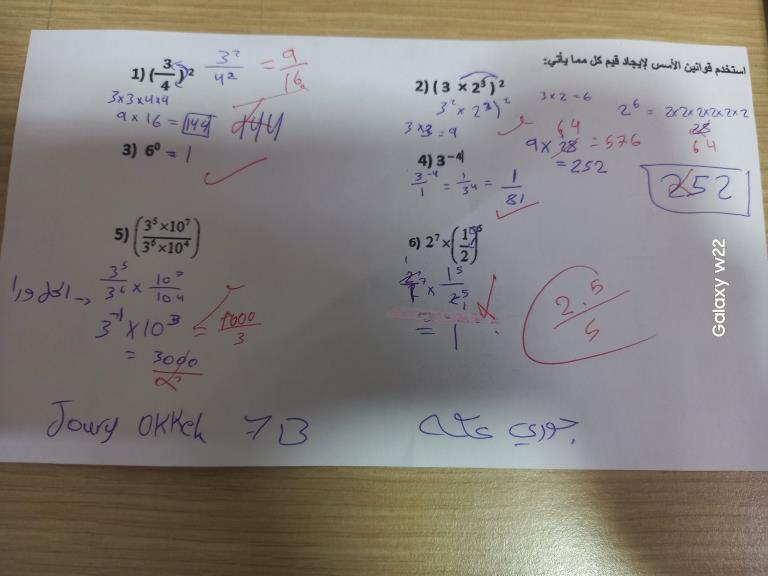 استخدم قوانين الأسس لإيجاد قيم كل مما يأتي:
1) (3/4)²
3²/4² = 9/16
3×3×4×4
9 × 16 = 144
144
2) (3 × 2³)²
3² × 2³)²
3 × 2 = 6
2⁶ = 2×2×2×2×2×2
28
64
3 × 3 = 9
64
9 × 28 = 576
= 252
252
3) 6⁰ = 1
4) 3⁻⁴
3⁻⁴/1 = 1/3⁴ = 1/81
5) (3⁵×10⁷/3⁶×10⁴)
3⁵/3⁶ × 10⁷/10⁴
3⁻¹ × 10³ = 1000/3
= 3000
6) 2⁷ × (1/2)⁵
2⁷ × 1⁵/2⁵
= 1
2.5/5
Joury OKKeh 7B
جوري عكه
Galaxy W22